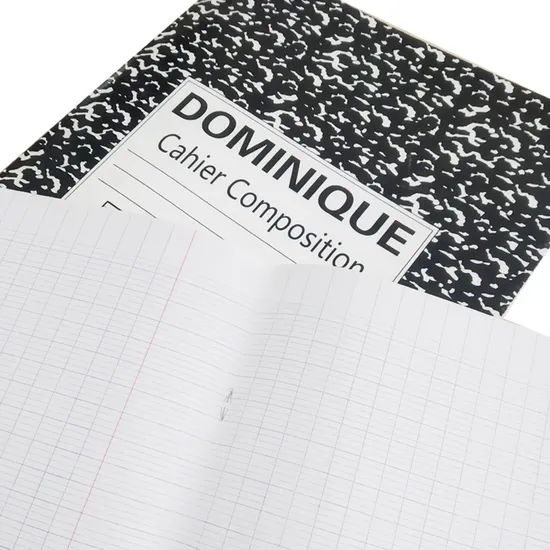 DOMINIQUE
Cahier Composition